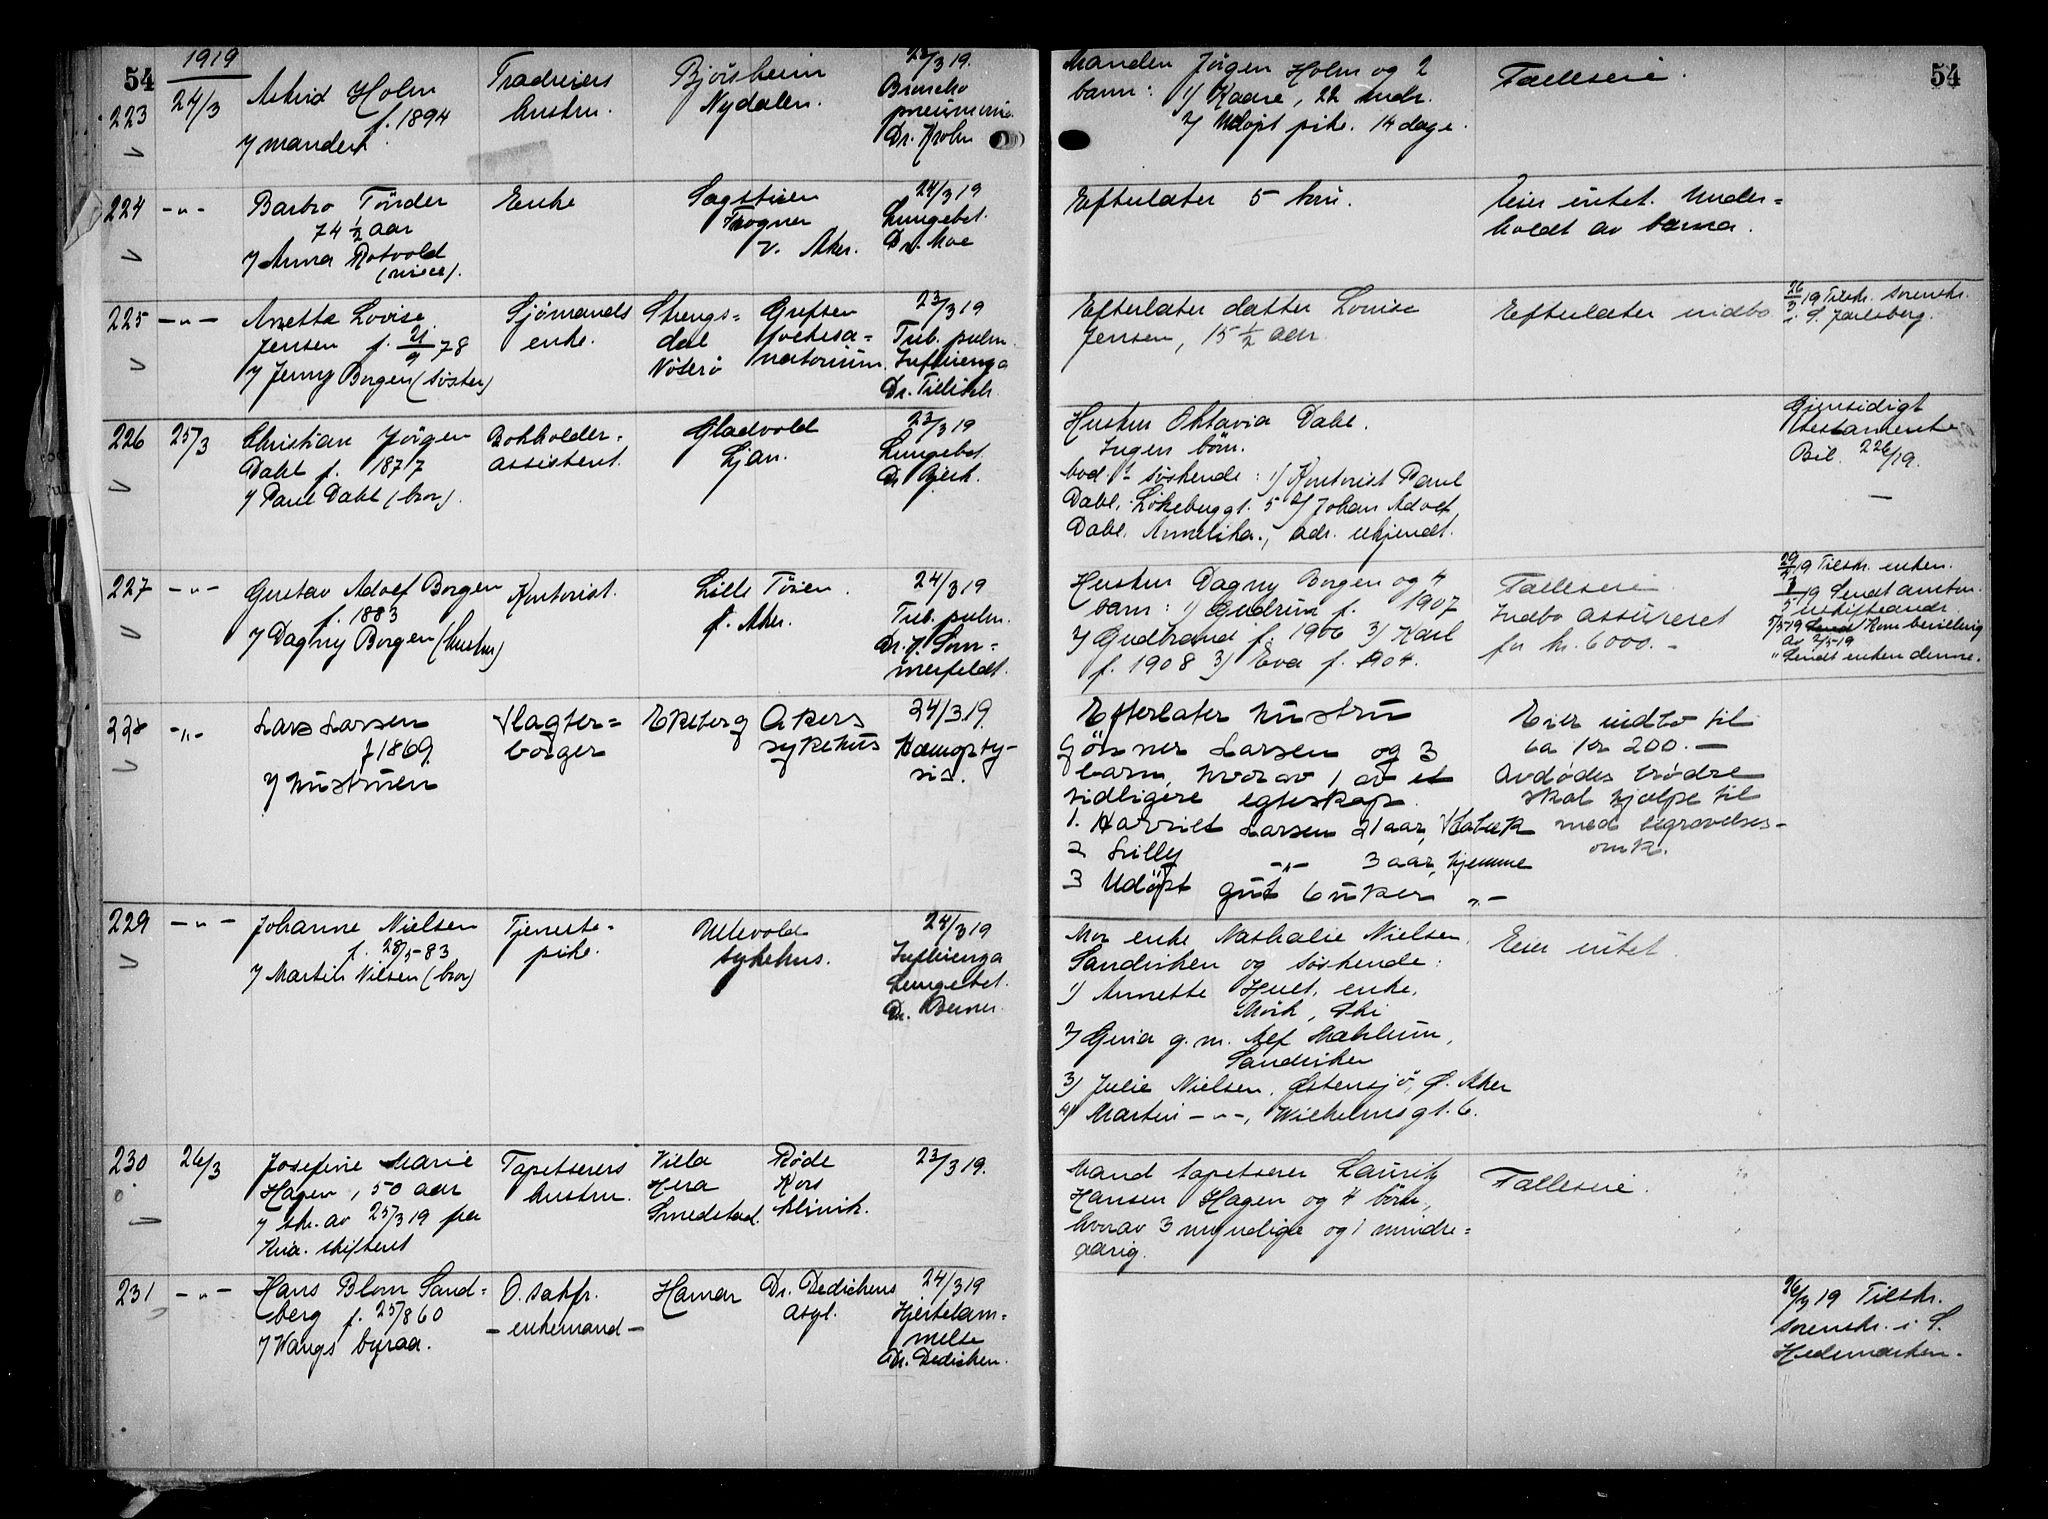 54
1919
223
24/3
Astrid Holm
f. 1894
v/ manden
hustru.
Bjørsheim
Nydalen.
23/3 19.
Broncho
pneumoni
Dr. Krohn
Manden Jörgen Holm og 2
barn: 1/ Kaare, 22 mdr.
2/ Udøpt pike. 14 dage.
Fælleseie.
54
224
-"-
Barbro
74 1/2 aar
v/ Anna Rotvold
(niece).
Enke
Sagstuen
Frogner
v. Aker.
24/3 19
Lungebet.
Dr. Moe
Efterlater 5 barn.
Eier intet. Under=
holdt av barna.
225
-"-
Anette Lovise
Jensen f. 21/9 78
v/ Jenny Borgen (søster)
Sjömands
enke.
Nöterö
Grefsen
folkesa=
natorium.
23/3 19
Tub. pulm.
Influenza
Efterlater datter Louise
Jensen, 15 1/2 aar.
Efterlater indbo
26/3 19 Tilskr. sorenskr.
i S. Jarlsberg.
226
25/3
Christian Jörgen
Dahl f. 1877
v/ Paul Dahl (bror).
Bokholder=
assistent.
Gladvold
Ljan.
23/3 19
Lungebet.
Hustru Oktavia Dahl.
Ingen börn.
søskende: 1/ Kontorist Paul
Dahl, Løkkebuggt. 5 2/ Johan Adolf
Dahl, Amerika., adr. ukjendt.
Gjensidigt
testamente
Bil. 226/19.
227
-"-
Gustav Adolf Borgen
f. 1883
v/ Dagny Borgen (hustru)
Kontorist.
Lille Töien.
Ø. Aker.
24/3 19
Tub. pulm.
Dr. J. Som=
merfeldt.
Hustru Dagny Borgen og 4
barn: 1/ Gudrun f. 1907
2/ Gudbrand f. 1906 3/ Karl
f. 1908 3/ Eva f. 1904.
Fælleseie
Indbo assureret
for kr. 6000.-
19 Tilskr. enken.
5/5 19 Kom bevilling
av 2/5 19
" Sendt enken denne.
228
-"-
Lars Larsen
f 1869
v/ hustruen
Slagter=
borger
Ekeberg
Akers
sykehus
24/3 19.
Hæmopty-
sis.
Efterlater hustru
Gönner Larsen og 3
barn, hvorav 1 av et
tidligere egteskap.
1. Harriet Larsen 21 aar, Slabæk
2 Lilly -"- 3 aar, hjemme
3 Udöpt gut 6 uker "-
Eier indbo til
ca kr 200.-
Avdødes brødre
skal hjælpe til
med begravelses-
omk.
229
-"-
Johanne Nielsen
f. 28/5-83
v/ Martin Nilsen (bror)
Tjeneste=
pike.
Ullevold
sykehus.
24/3 19
Influenza
Lungebet.
Dr. Berner.
Mor enke Nathalie Nielsen,
Sandviken og søskende:
1/ Annette Hult, enke,
Mörk, Ski
2/ Gina g.m. Alf Mæhlum,
Sandviken
3/ Julie Nielsen, Østensjö, Ø. Aker
4/ Martin -"-, Wilhelmsgt. 6.
Eier intet.
230
26/3
Josefine Marie
Hagen, 50 aar
v/ skr. av 25/3 19 fra
Kria. skifteret
Tapetserers
hustru.
Villa
Hera
Smedstad.
Røde
Kors
klinik.
23/3 19.
Mand tapetserer Lauritz
Hansen Hagen og 4 börn,
hvorav 3 myndige og 1 mindre=
aarig.
Fælleseie.
231
-"-
Hans Blom Sand=
berg f. 25/8 60
v/ Wangs byraa.
O. sakfr.
- enkemand -
Hamar
Dr. Dedichens
asyl.
24/3 19
Hjertelam=
melse
Dr. Dedichen.
26/3 19 Tilskr.
sorenskr. i S.
Hedemarken.